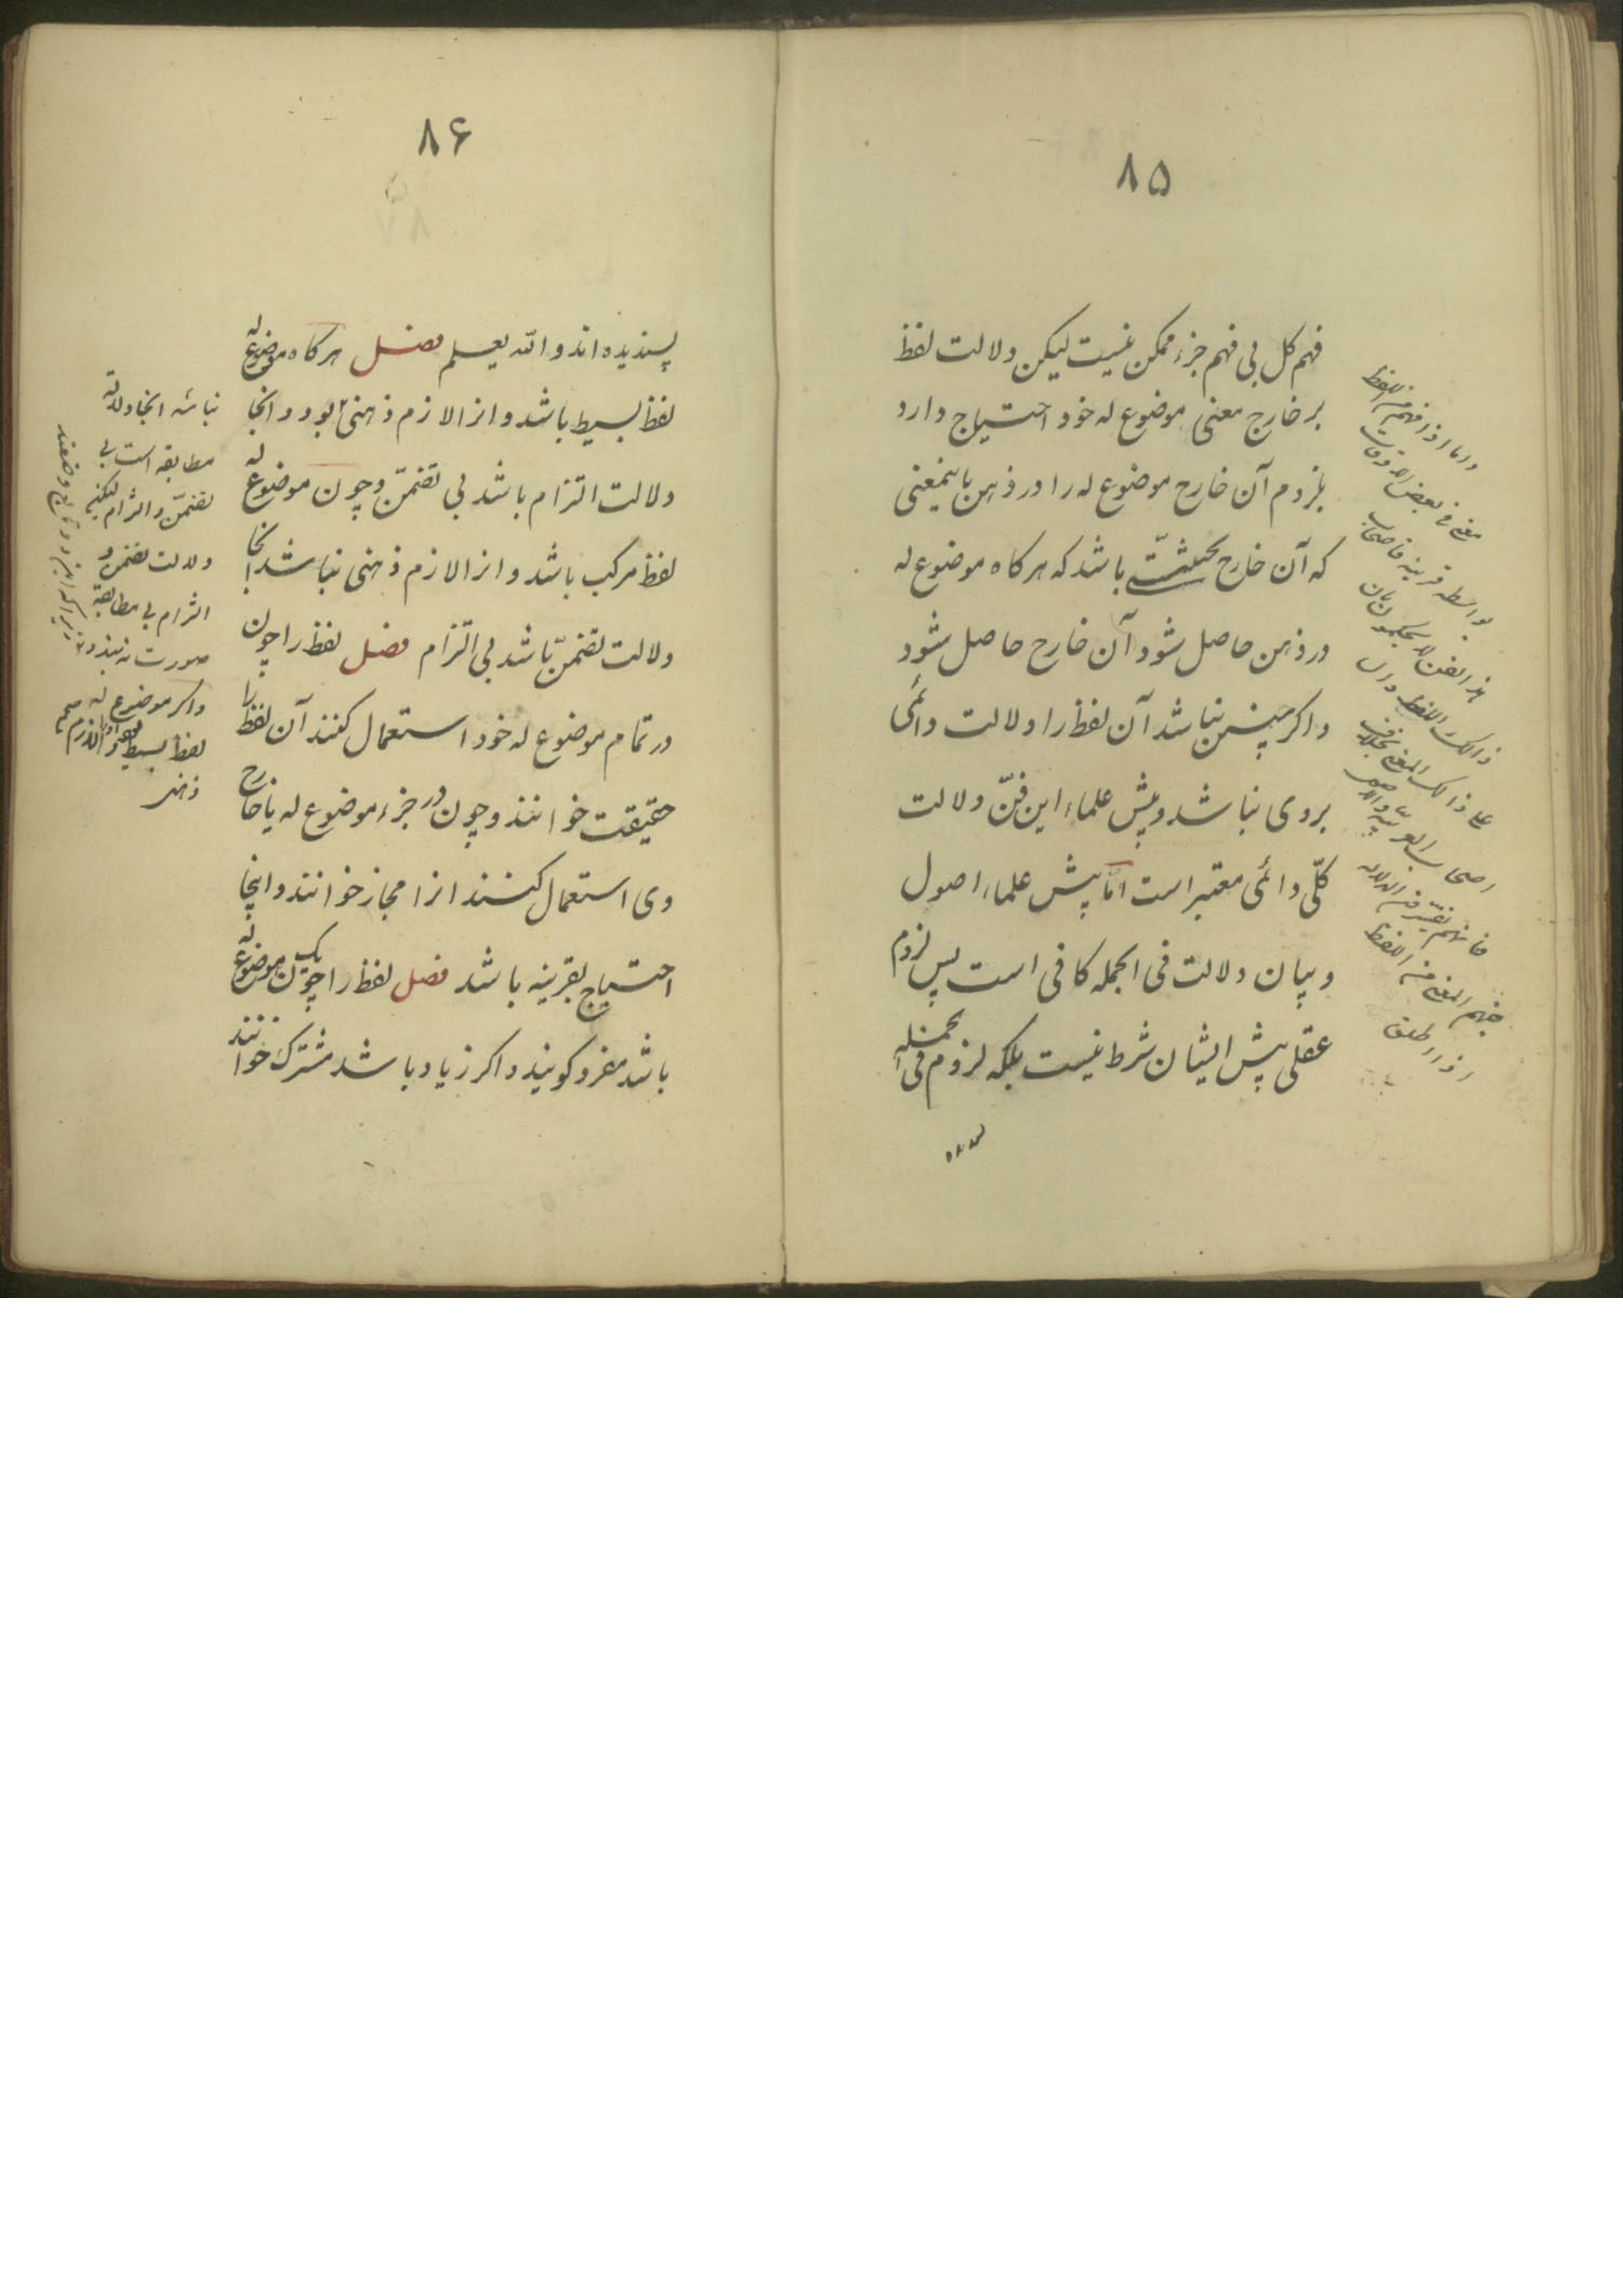 ۸۵
فهم کل بی فهم جزء ممکن نیست لیکن دلالت لفظ
بر خارج معنی موضوع له خود احتیاج دارد
بلزوم آن خارج موضوع له را در ذهن باینمعنی
که آن خارج بحیثیّتی باشد که هر کاه موضوع له
در ذهن حاصل شود آن خارج حاصل شود
و اکر چنین نباشد آن لفظ را دلالت دائمی
بر وی نباشد و پیش علماء این فنّ دلالت
کلّی دائمی معتبر است امّا پیش علماء اصول
و بیان دلالت فی الجمله کافی است پس لزوم
عقلی پیش ایشان شرط نیست بلکه لزوم فی الجمله
پسندیده
واما اذا فهم من اللفظ
معنی فی بعض الاوقات
بواسطه قرینه فاصحاب
هذا الفن لا یحکمون بان
ذالک اللفظ دال
علی ذالک المعنی بخلاف
اصحاب العربیه والاصول
فانهم
فهم المعنی من اللفظ
۸۶
پسندیده اند و الله یعلم فصل هر کاه موضوع له
لفظ بسیط باشد و انرا لازم ذهنی بود در انجا
دلالت التزام باشد بی تضمّن و چون موضوع له
لفظ مرکب باشد و انرا لازم ذهنی نباشد انجا
دلالت تضمّن باشد بی التزام فصل لفظ را چون
در تمام موضوع له خود استعمال کنند آن لفظ را
حقیقت خوانند و چون در جزء موضوع له یا خارج
وی استعمال کنند انرا مجاز خوانند و اینجا
احتیاج بقرینه باشد فصل لفظ را چون یک موضوع له
باشد مفرد کویند و اکر زیاد باشد مشترک خوانند
نباشد انجا دلالة
مطابقه است بی
تضمّن و التزام لیکن
دلالت تضمن و
التزام بی مطابقة
صورت نه بندد
زیرا که این دو تابع وضعند
و اکر موضوع له
لفظ بسیط
ذهنی